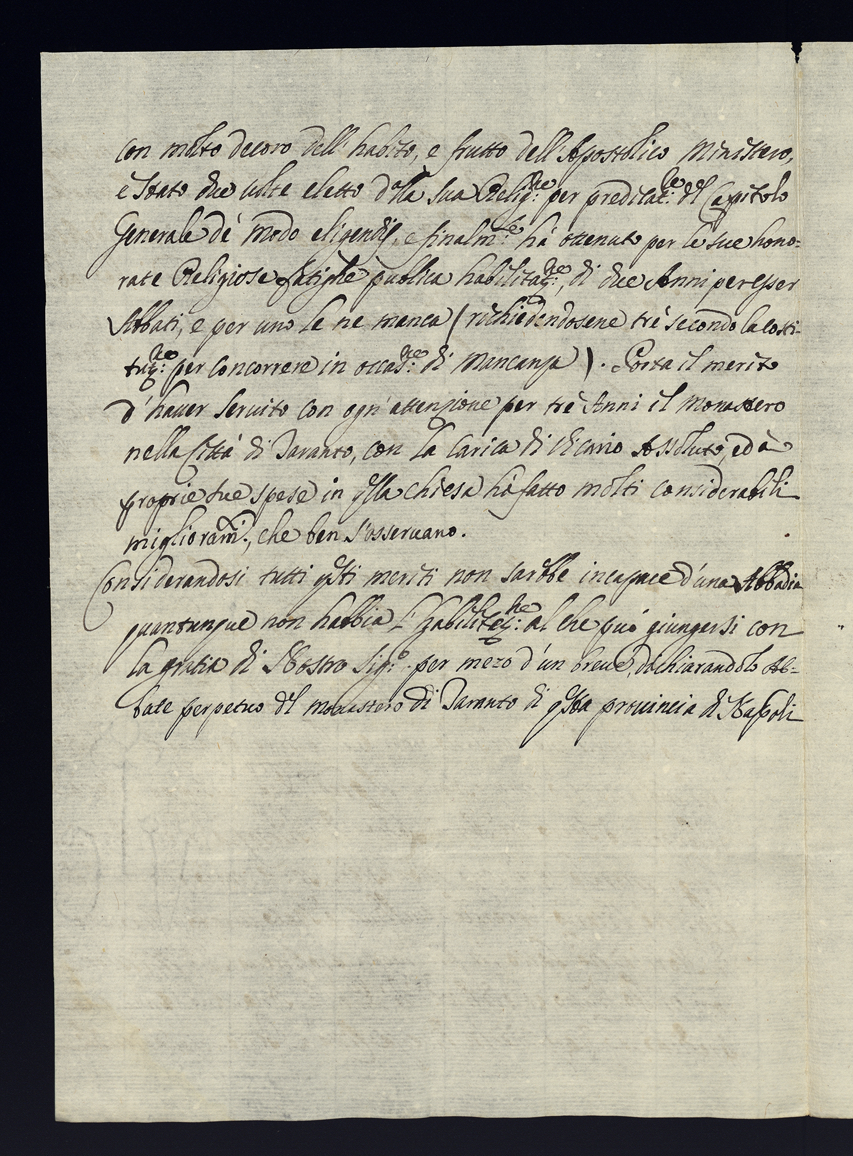 con molto decoro dell'habito, e frutto dell'Apostolico Ministero,
è stato due volte eletto d'lla sua Relig:ne per predicat:re d'l Capitolo
Generale de' modo eligendis, e finalm:te hà ottenuto per le sue hono-
rate Religiose fatighe publica habilitaz:ne, di due Anni per esser
Abbati, e per uno le ne manca (richiedendosene trè secondo la costi-
tuz:ne per concorrere in occas:ne di mancanza). Porta il merito
d'hauer seruito con ogn'attenzione per trè Anni il monastero
nella Città di Taranto, con la carica di Vicario Assoluto, ed à
proprie sue spese in q'lla chiesa hà fatto molti considerabili
miglioram:ti, che ben s'osseruano.
Considerandosi tutti q'sti meriti non sarebbe incapace d'una Abbadia
quantunque non habbia l'habilitaz:ne al che può giungersi con
la gratia di Nostro Sig:re per mezo d'un breue, dichiarandolo Ab-
bate perpetuo d'l monastero di Taranto di q'sta prouincia di Napoli